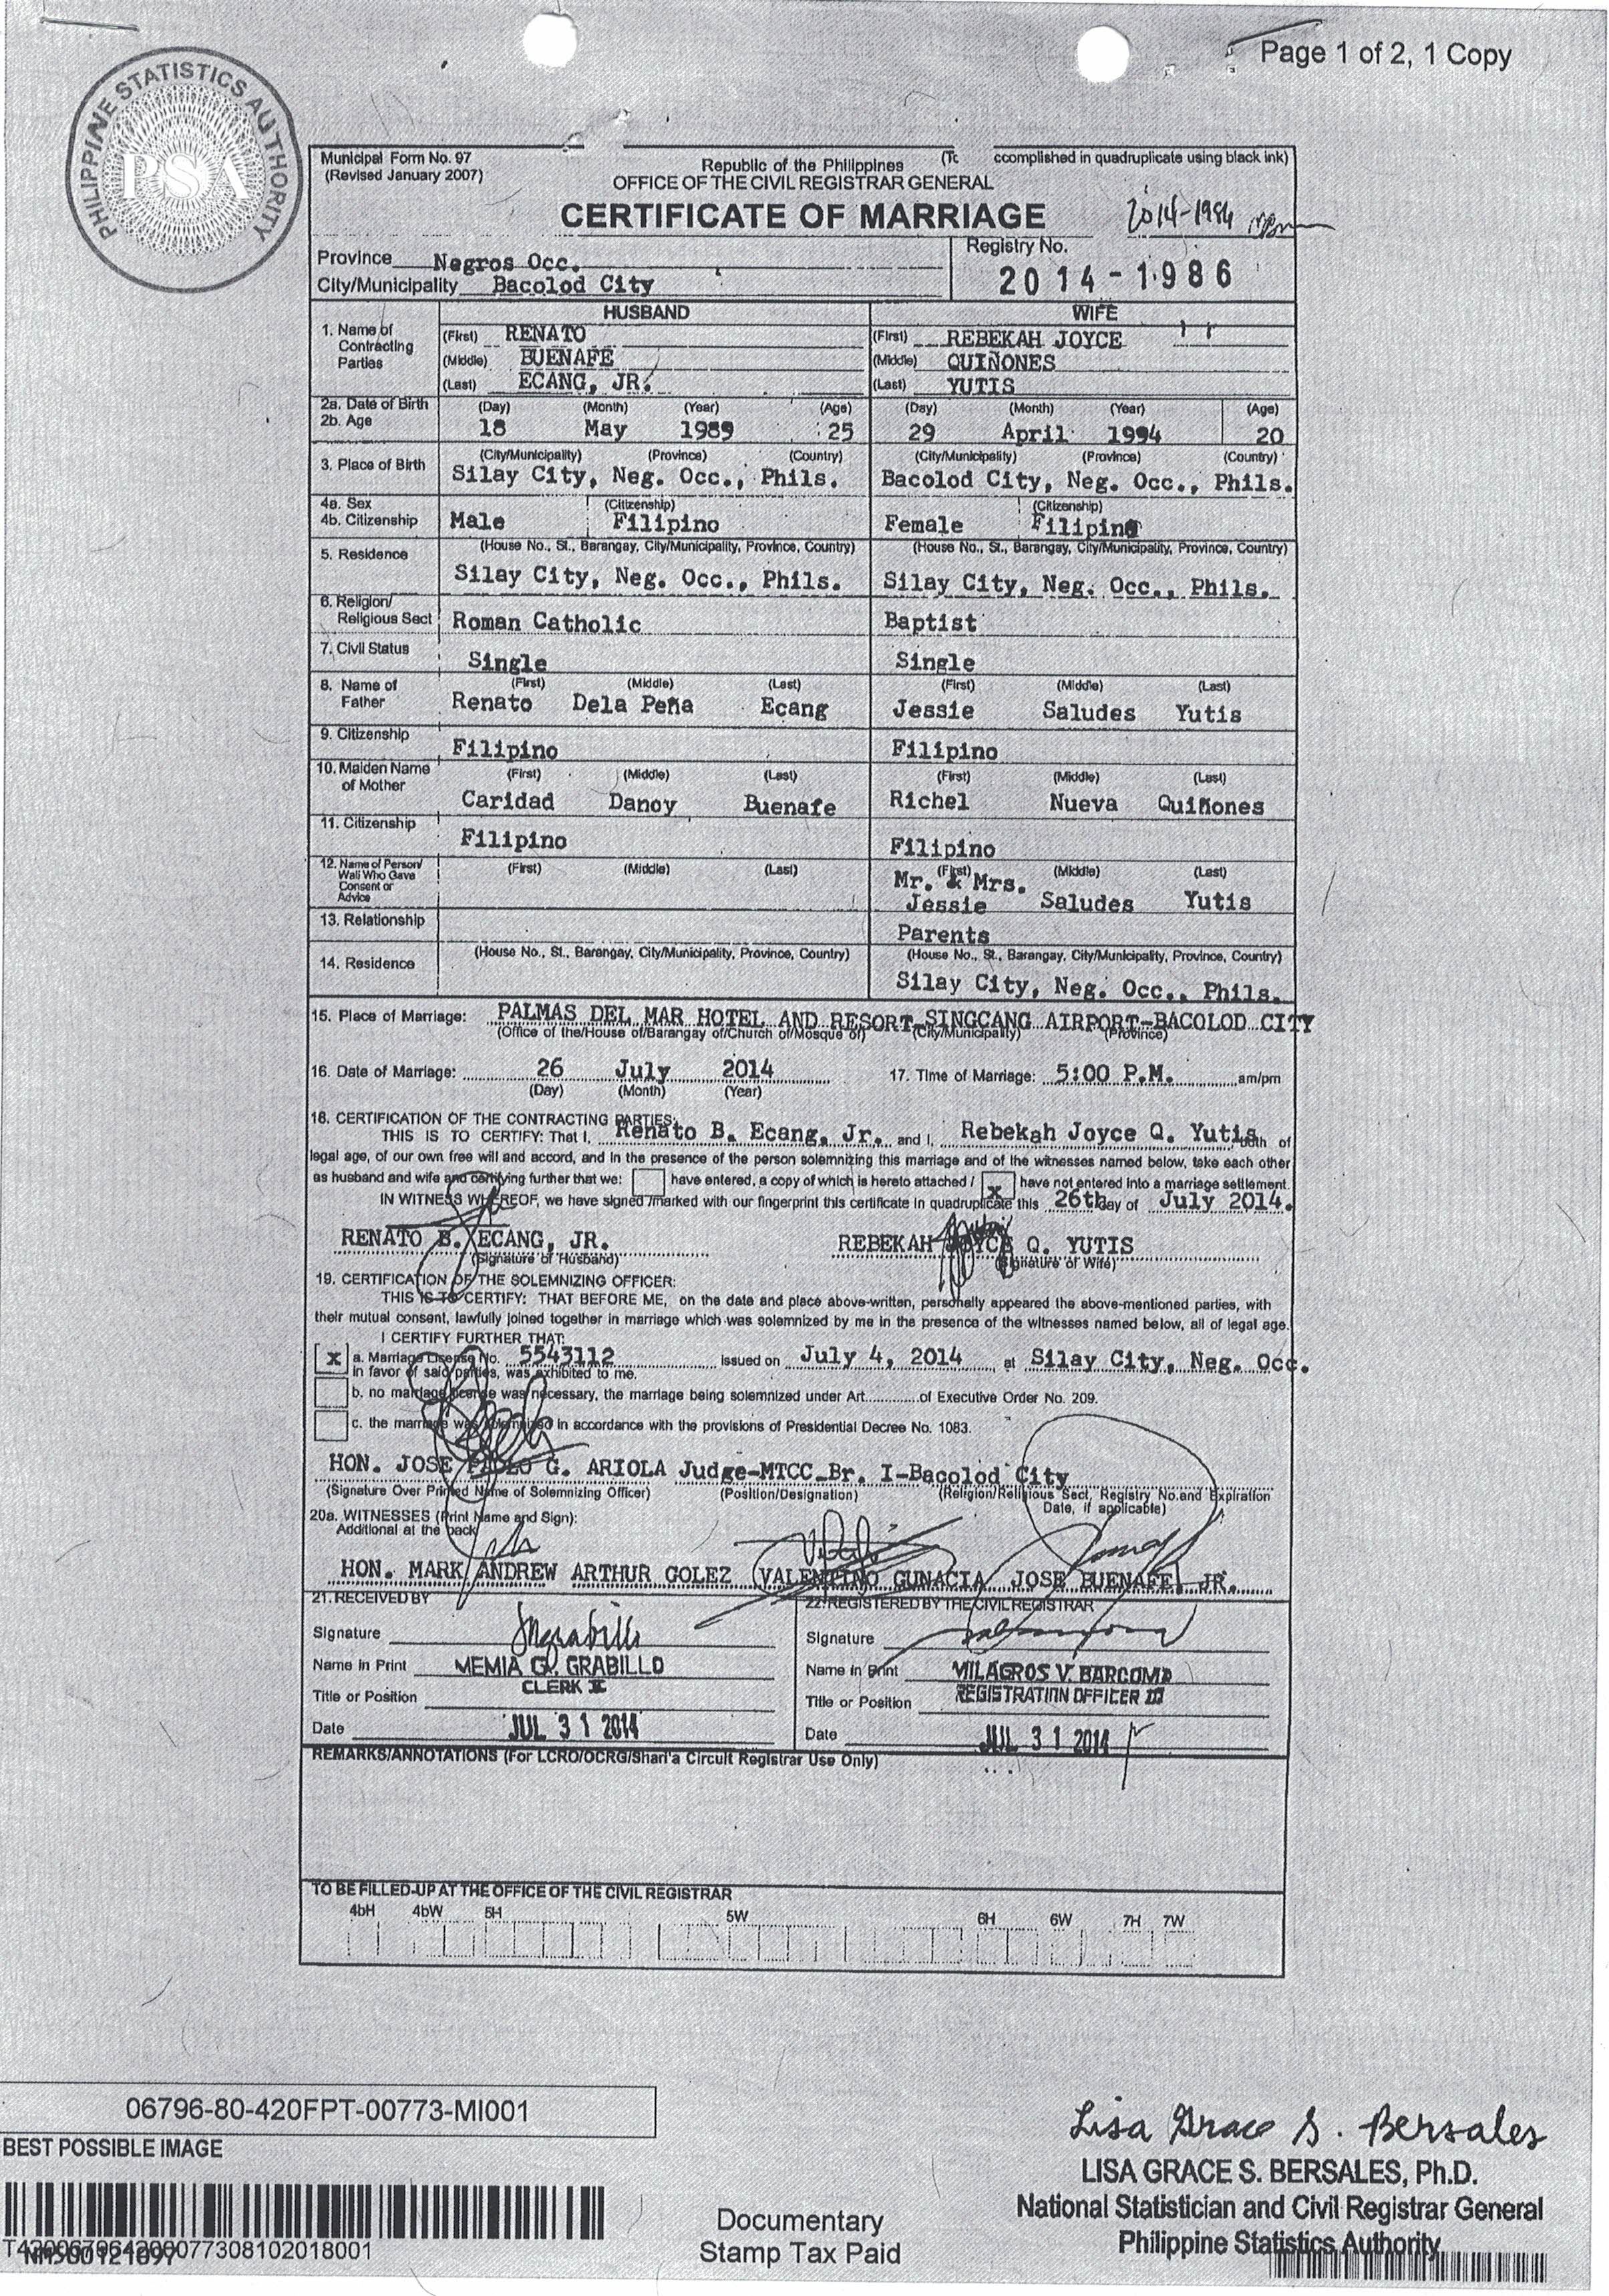 Page 1 of 2, 1 Copy
PHILIPPINE STATISTICS AUTHORITY
PSA
Municipal Form No. 97
(Revised January 2007)
Republic of the Philippines
(Tc ccomplished in quadruplicate using black ink)
OFFICE OF THE CIVIL REGISTRAR GENERAL
CERTIFICATE OF MARRIAGE
2014-1984
Province Negros Occ.
City/Municipality Bacolod City
Registry No.
2014-1986
HUSBAND WIFE
1. Name of Contracting Parties
(First) RENATO (First) REBEKAH JOYCE
(Middle) BUENAFE (Middle) QUIÑONES
(Last) ECANG, JR. (Last) YUTIS
2a. Date of Birth (Day) (Month) (Year) (Age) (Day) (Month) (Year) (Age)
2b. Age 18 May 1989 25 29 April 1994 20
(City/Municipality) (Province) (Country) (City/Municipality) (Province) (Country)
3. Place of Birth Silay City, Neg. Occ., Phils. Bacolod City, Neg. Occ., Phils.
4a. Sex (Citizenship) (Citizenship)
4b. Citizenship Male Filipino Female Filipino
5. Residence (House No., St., Barangay, City/Municipality, Province, Country) (House No., St., Barangay, City/Municipality, Province, Country)
Silay City, Neg. Occ., Phils. Silay City, Neg. Occ., Phils.
6. Religion/
Religious Sect Roman Catholic Baptist
7. Civil Status Single Single
8. Name of Father (First) (Middle) (Last) (First) (Middle) (Last)
Renato Dela Peña Ecang Jessie Saludes Yutis
9. Citizenship Filipino Filipino
10. Maiden Name of Mother (First) (Middle) (Last) (First) (Middle) (Last)
Caridad Danoy Buenafe Richel Nueva Quiñones
11. Citizenship Filipino Filipino
12. Name of Person/ Wali Who Gave Consent or Advice (First) (Middle) (Last) (First) (Middle) (Last)
Mr. & Mrs.
Jessie Saludes Yutis
13. Relationship Parents
14. Residence (House No., St., Barangay, City/Municipality, Province, Country) (House No., St., Barangay, City/Municipality, Province, Country)
Silay City, Neg. Occ., Phils.
15. Place of Marriage: PALMAS DEL MAR HOTEL AND RESORT-SINGCANG AIRPORT-BACOLOD CITY
(Office of the/House of/Barangay of/Church of/Mosque of) (City/Municipality) (Province)
16. Date of Marriage: 26 July 2014 17. Time of Marriage: 5:00 P.M. am/pm
(Day) (Month) (Year)
18. CERTIFICATION OF THE CONTRACTING PARTIES:
THIS IS TO CERTIFY: That I, Renato B. Ecang, Jr. and I, Rebekah Joyce Q. Yutis both of
legal age, of our own free will and accord, and in the presence of the person solemnizing this marriage and of the witnesses named below, take each other
as husband and wife and certifying further that we: have entered, a copy of which is hereto attached / x have not entered into a marriage settlement.
IN WITNESS WHEREOF, we have signed/marked with our fingerprint this certificate in quadruplicate this 26th day of July 2014.
RENATO B. ECANG, JR. REBEKAH JOYCE Q. YUTIS
(Signature of Husband) (Signature of Wife)
19. CERTIFICATION OF THE SOLEMNIZING OFFICER:
THIS IS TO CERTIFY: THAT BEFORE ME, on the date and place above-written, personally appeared the above-mentioned parties, with
their mutual consent, lawfully joined together in marriage which was solemnized by me in the presence of the witnesses named below, all of legal age.
I CERTIFY FURTHER THAT:
x a. Marriage License No. 5543112 issued on July 4, 2014 at Silay City, Neg. Occ.
in favor of said parties, was exhibited to me.
b. no marriage license was necessary, the marriage being solemnized under Art. of Executive Order No. 209.
c. the marriage was solemnized in accordance with the provisions of Presidential Decree No. 1083.
HON. JOSE PAOLO G. ARIOLA Judge-MTCC-Br. I-Bacolod City
(Signature Over Printed Name of Solemnizing Officer) (Position/Designation) (Religion/Religious Sect, Registry No.and Expiration
Date, if applicable)
20a. WITNESSES (Print Name and Sign):
Additional at the back
HON. MARK ANDREW ARTHUR GOLEZ VALENTINO GUNACIA JOSE BUENAFE, JR.
21. RECEIVED BY 22. REGISTERED BY THE CIVIL REGISTRAR
Signature Signature
Name in Print MEMIA G. GRABILLO Name in Print MILAGROS V. BARCOMA
Title or Position CLERK II Title or Position REGISTRATION OFFICER III
Date JUL 31 2014 Date JUL 31 2014
REMARKS/ANNOTATIONS (For LCRO/OCRG/Shari'a Circuit Registrar Use Only)
TO BE FILLED-UP AT THE OFFICE OF THE CIVIL REGISTRAR
4bH 4bW 5H 5W 6H 6W 7H 7W
06796-80-420FPT-00773-MI001
BEST POSSIBLE IMAGE
Lisa Grace S. Bersales
LISA GRACE S. BERSALES, Ph.D.
National Statistician and Civil Registrar General
Philippine Statistics Authority
Documentary
Stamp Tax Paid